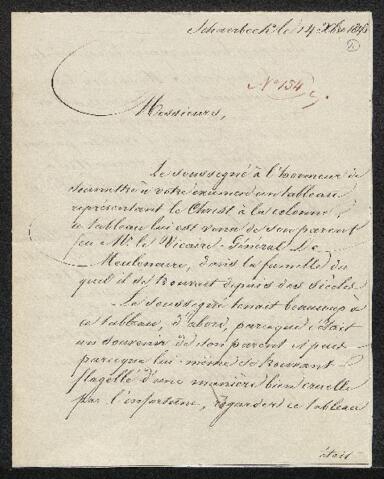 Schaerbeck le 14 Xbre 184
N° 154
Messieurs,
Le soussigné à l'honneur de
soumettre à votre examen un tableau
représentant le Christ à la colonne
ce tableau lui est venu de son parent
feu Mr. le Vicaire-Général De
Meulenaere, dans la famille du
quel il se trouvait depuis des siècles
Le soussigné tenait beaucoup à
ce tableau, d'abord, parceque c'était
un souvenir de son parent et puis
parceque lui même se trouvant
flagellé d'une manière bien cruelle
par l'infortune, regarder ce tableau
était